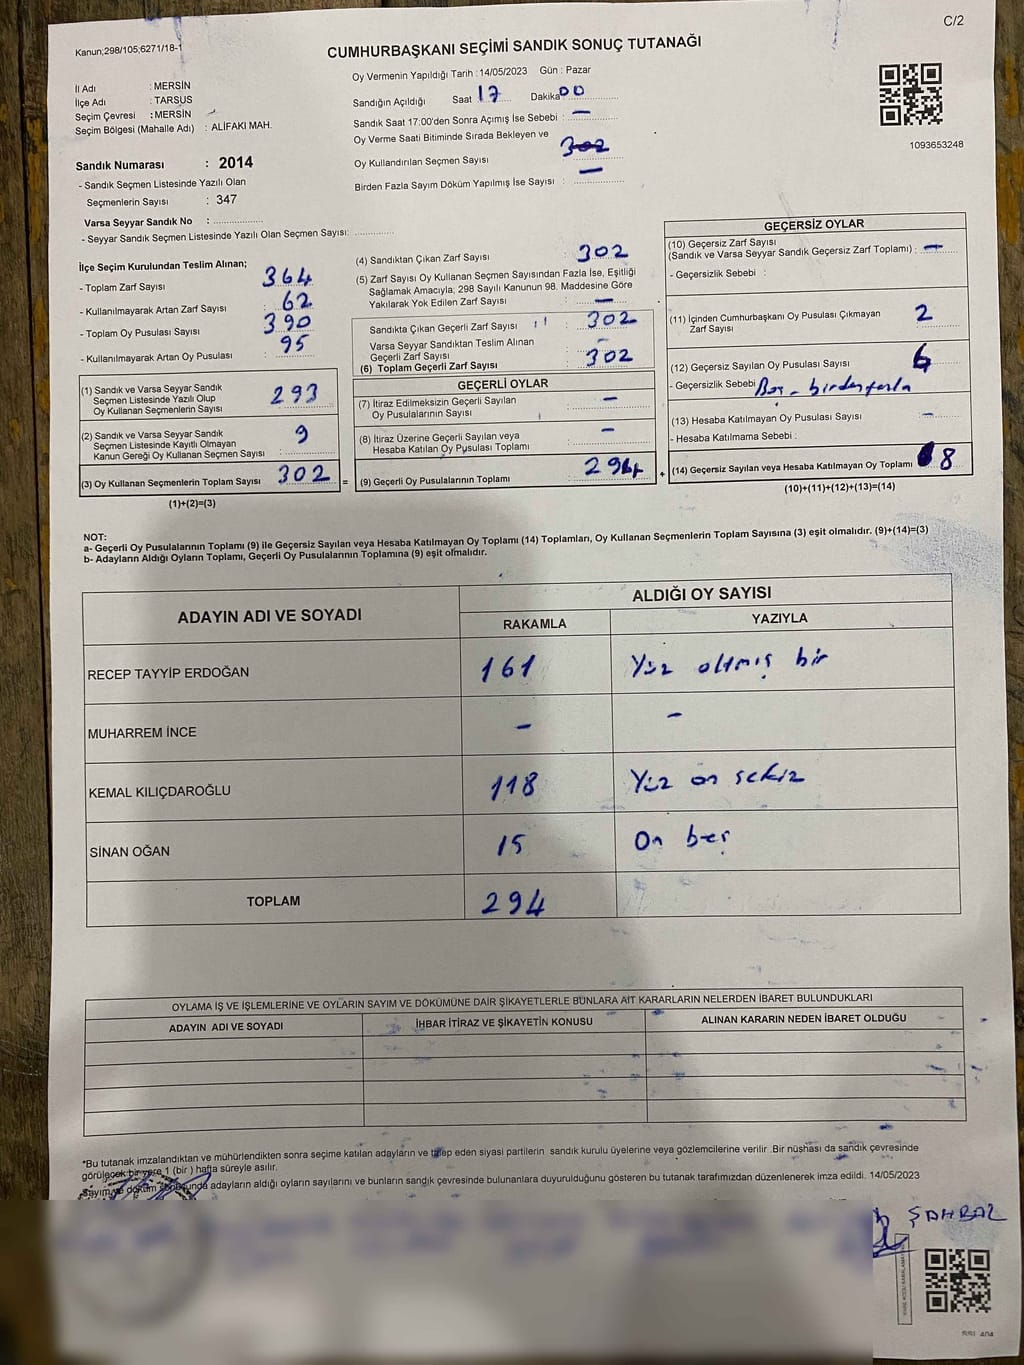 C/2
Kanun;298/105;6271/18-1
CUMHURBAŞKANI SEÇİMİ SANDIK SONUÇ TUTANAĞI
İl Adı : MERSİN
İlçe Adı : TARSUS
Seçim Çevresi : MERSİN
Seçim Bölgesi (Mahalle Adı) : ALİFAKI MAH.
Sandık Numarası : 2014
- Sandık Seçmen Listesinde Yazılı Olan
Seçmenlerin Sayısı : 347
Varsa Seyyar Sandık No :
- Seyyar Sandık Seçmen Listesinde Yazılı Olan Seçmen Sayısı:
Oy Vermenin Yapıldığı Tarih : 14/05/2023 Gün : Pazar
Sandığın Açıldığı Saat 17 Dakika 00
Sandık Saat 17:00'den Sonra Açımış İse Sebebi : —
Oy Verme Saati Bitiminde Sırada Bekleyen ve
Oy Kullandırılan Seçmen Sayısı 302
Birden Fazla Sayım Döküm Yapılmış İse Sayısı : —
1093653248
İlçe Seçim Kurulundan Teslim Alınan;
- Toplam Zarf Sayısı : 364
- Kullanılmayarak Artan Zarf Sayısı : 62
- Toplam Oy Pusulası Sayısı : 390
- Kullanılmayarak Artan Oy Pusulası : 95
(1) Sandık ve Varsa Seyyar Sandık
Seçmen Listesinde Yazılı Olup
Oy Kullanan Seçmenlerin Sayısı : 293
(2) Sandık ve Varsa Seyyar Sandık
Seçmen Listesinde Kayıtlı Olmayan
Kanun Gereği Oy Kullanan Seçmen Sayısı : 9
(3) Oy Kullanan Seçmenlerin Toplam Sayısı : 302 =
(1)+(2)=(3)
(4) Sandıktan Çıkan Zarf Sayısı : 302
(5) Zarf Sayısı Oy Kullanan Seçmen Sayısından Fazla İse, Eşitliği
Sağlamak Amacıyla; 298 Sayılı Kanunun 98. Maddesine Göre
Yakılarak Yok Edilen Zarf Sayısı : —
Sandıkta Çıkan Geçerli Zarf Sayısı : 302
Varsa Seyyar Sandıktan Teslim Alınan
Geçerli Zarf Sayısı : –
(6) Toplam Geçerli Zarf Sayısı : 302
GEÇERLİ OYLAR
(7) İtiraz Edilmeksizin Geçerli Sayılan
Oy Pusulalarının Sayısı : —
(8) İtiraz Üzerine Geçerli Sayılan veya
Hesaba Katılan Oy Pusulası Toplamı : —
(9) Geçerli Oy Pusulalarının Toplamı : 294 +
GEÇERSİZ OYLAR
(10) Geçersiz Zarf Sayısı
(Sandık ve Varsa Seyyar Sandık Geçersiz Zarf Toplamı) : —
- Geçersizlik Sebebi :
(11) İçinden Cumhurbaşkanı Oy Pusulası Çıkmayan
Zarf Sayısı : 2
(12) Geçersiz Sayılan Oy Pusulası Sayısı : 6
- Geçersizlik Sebebi Boş - birden fazla
(13) Hesaba Katılmayan Oy Pusulası Sayısı : —
- Hesaba Katılmama Sebebi :
(14) Geçersiz Sayılan veya Hesaba Katılmayan Oy Toplamı 8
(10)+(11)+(12)+(13)=(14)
NOT:
a- Geçerli Oy Pusulalarının Toplamı (9) ile Geçersiz Sayılan veya Hesaba Katılmayan Oy Toplamı (14) Toplamları, Oy Kullanan Seçmenlerin Toplam Sayısına (3) eşit olmalıdır. (9)+(14)=(3)
b- Adayların Aldığı Oyların Toplamı, Geçerli Oy Pusulalarının Toplamına (9) eşit olmalıdır.
ADAYIN ADI VE SOYADI ALDIĞI OY SAYISI
RAKAMLA YAZIYLA
RECEP TAYYİP ERDOĞAN 161 Yüz altmış bir
MUHARREM İNCE – –
KEMAL KILIÇDAROĞLU 118 Yüz on sekiz
SİNAN OĞAN 15 On beş
TOPLAM 294
OYLAMA İŞ VE İŞLEMLERİNE VE OYLARIN SAYIM VE DÖKÜMÜNE DAİR ŞİKAYETLERLE BUNLARA AİT KARARLARIN NELERDEN İBARET BULUNDUKLARI
ADAYIN ADI VE SOYADI İHBAR İTİRAZ VE ŞİKAYETİN KONUSU ALINAN KARARIN NEDEN İBARET OLDUĞU
*Bu tutanak imzalandıktan ve mühürlendikten sonra seçime katılan adayların ve talep eden siyasi partilerin sandık kurulu üyelerine veya gözlemcilerine verilir .Bir nüshası da sandık çevresinde
görülecek bir yere 1 (bir ) hafta süreyle asılır.
Sayım ve döküm sonucunda adayların aldığı oyların sayılarını ve bunların sandık çevresinde bulunanlara duyurulduğunu gösteren bu tutanak tarafımızdan düzenlenerek imza edildi. 14/05/2023
ŞAHBAZ